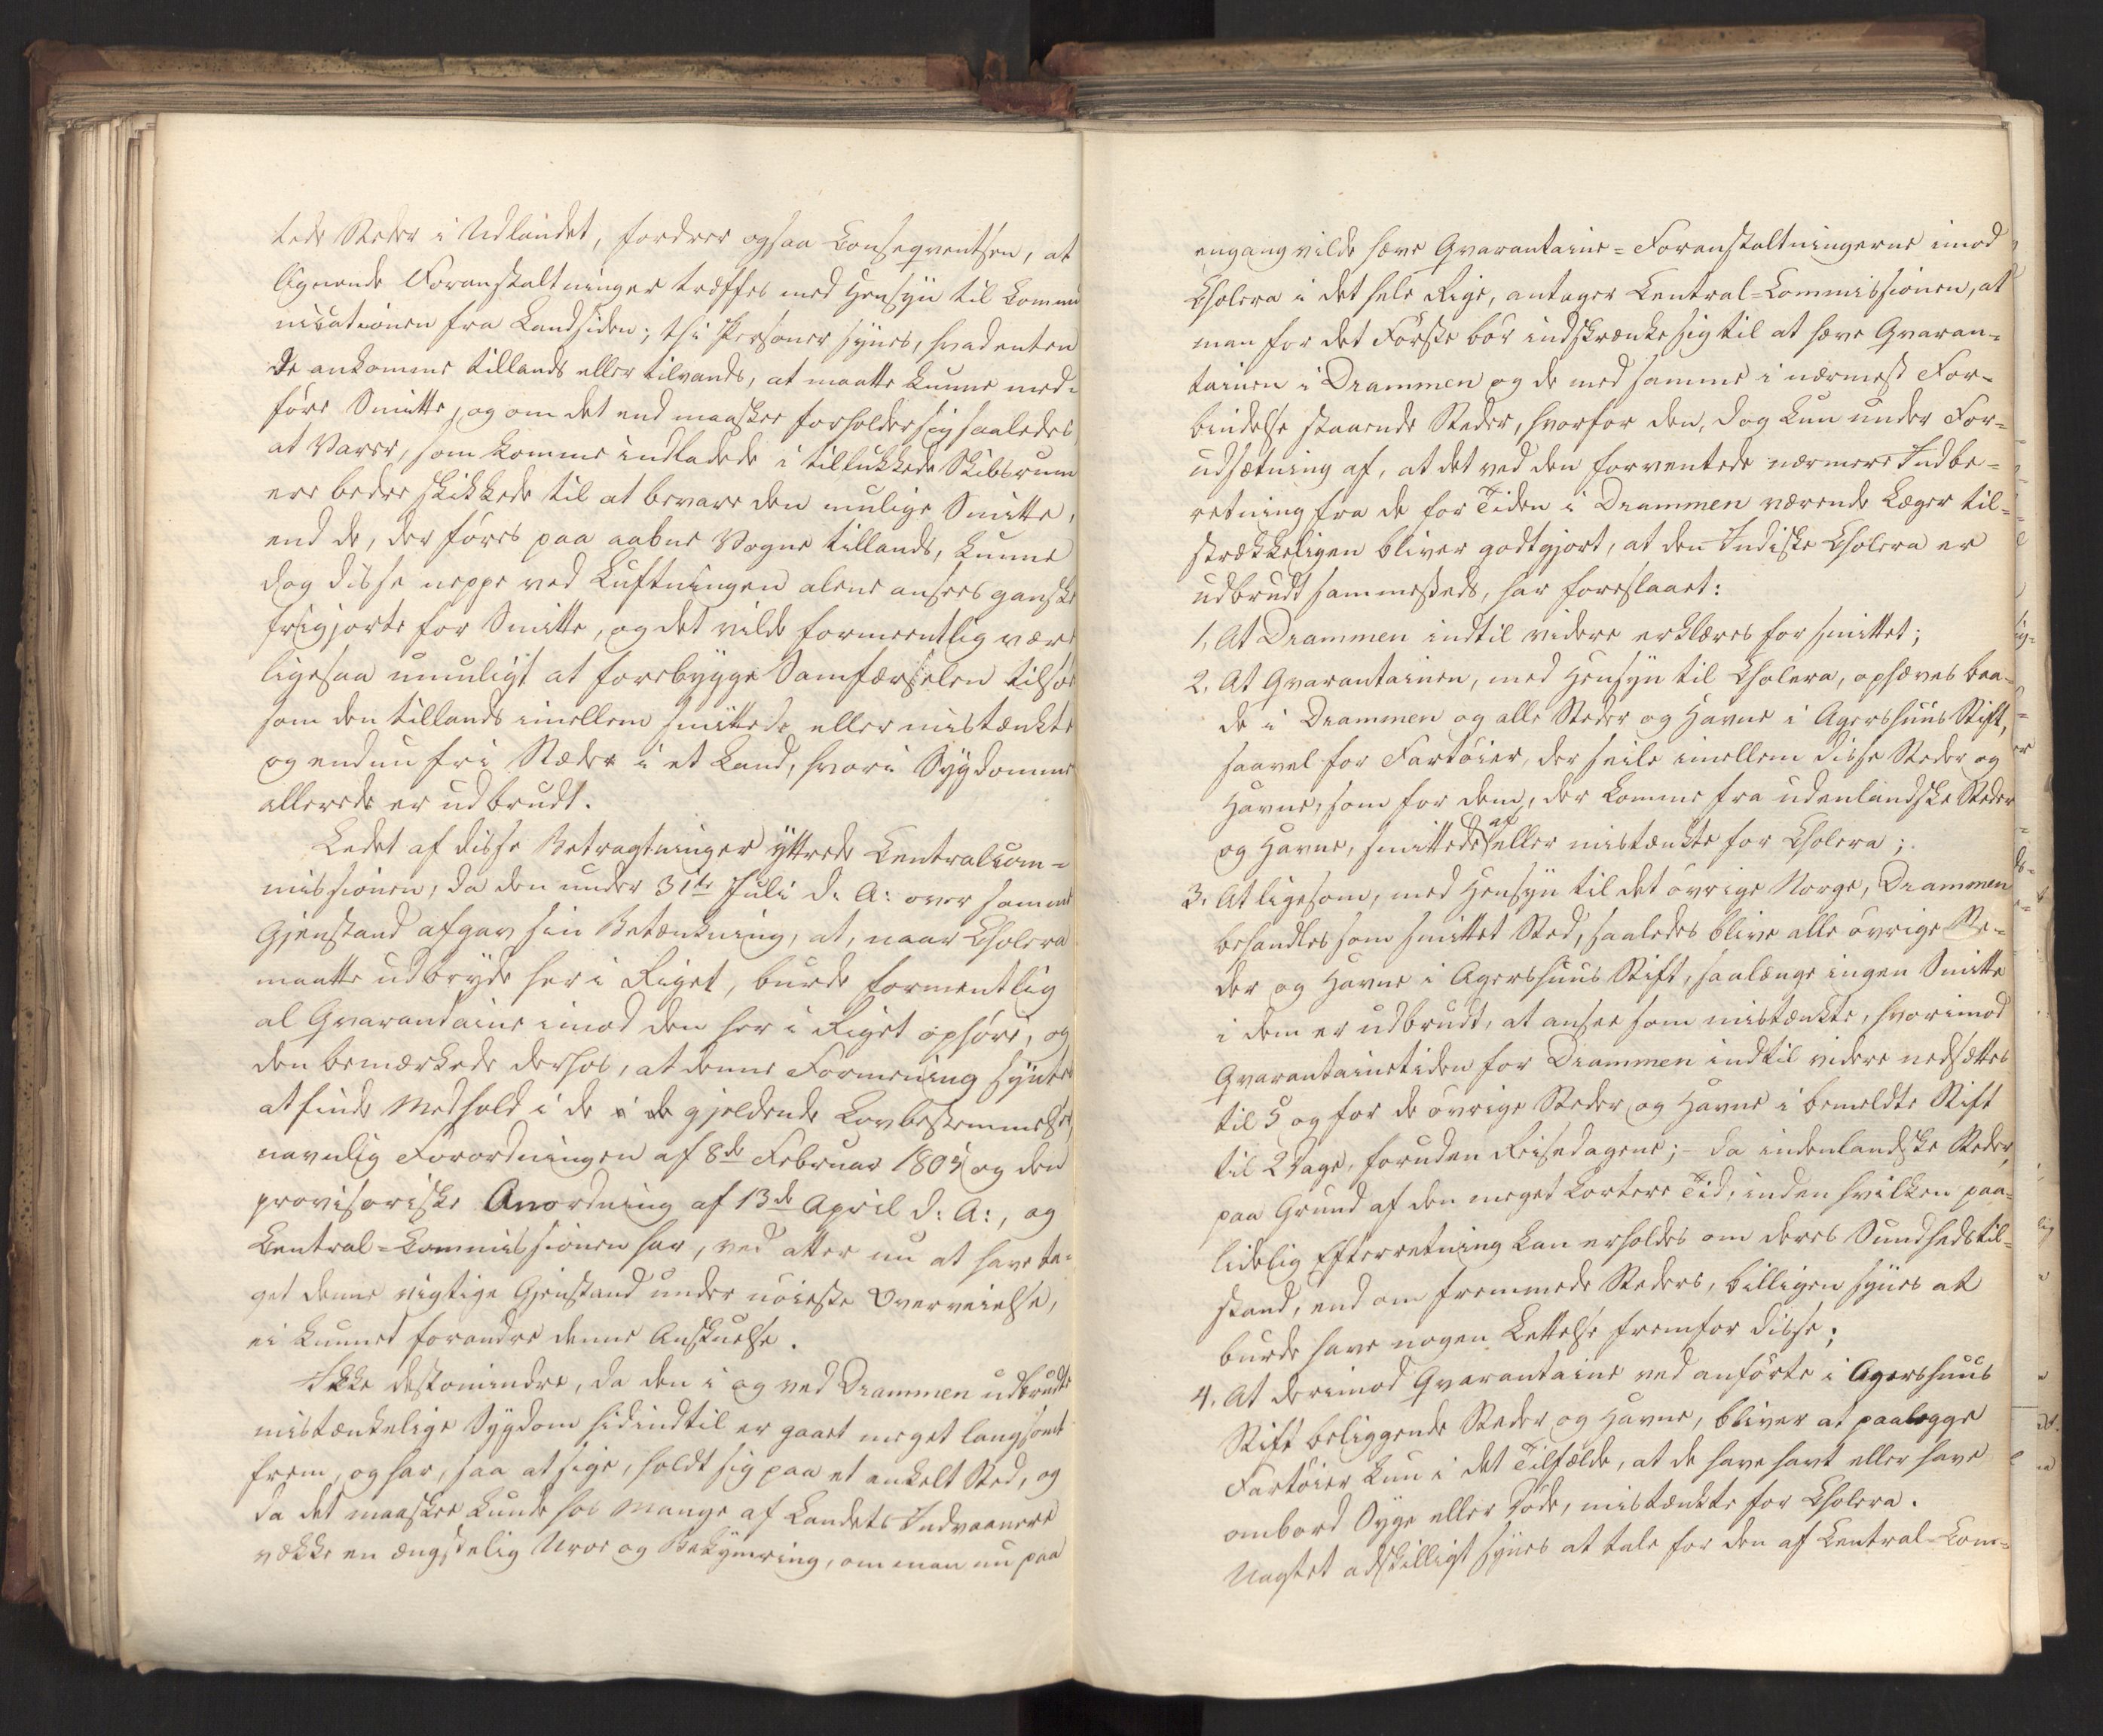 tede Steder i Udlandet, fordrer ogsaa Conseqventsen, at
lignende Foranstaltninger træffes med Hensyn til Kommu
nicationen fra Landsiden; thi Personer synes, hvad enten
de ankomme tillands eller tilvands, at maatte kunne med-
føre Smitte, og om det end maaskee forholder sig saaledes,
at Varer, som komme indladede i tillukkede Skibsrum
ere bedre skikkede til at bevare den mulige Smitte,
end de, der føres paa aabne Vogne tillands, kunne
dog disse neppe ved Luftningen alene ansees ganske
frigjorte for Smitte, og det vilde formeentlig være
ligesaa umuligt at forebygge Samfærselen tilsøes
som den tillands imellem smittede eller mistænkte
og endnu fri Stæder i et Land, hvori Sygdommen
allerede er udbrudt.
Ledet af disse Betragtninger yttrede Centralcom-
missionen, da den under 31te Juli d. A: over samme
Gjenstand afgav sin Betænkning, at, naar Cholera
maatte udbryde her i Riget, burde formentlig
al Qvarantaine imod den her i Riget ophøre, og
den bemærkede derhos, at denne Formening syntes
at finde Medhold i de i de gjeldende Lovbestemmelser,
navnlig Forordningen af 8de Februar 1805 og den
provisoriske Anordning af 13de April d: A:, og
Central-Commissionen har, ved atter nu at have ta-
get denne vigtige Gjenstand under nøieste Overveielse,
ei kunnet forandre denne Anskuelse.
Ikke destomindre, da den i og ved Drammen udbrudte
mistænkelige Sygdom hidindtil er gaaet meget langsomt
frem, og har, saa at sige, holdt sig paa et enkelt Sted, og
da det maaskee kunde hos Mange af Landets Indvaanere
vække en ængstelig Uroe og Bekymring, om man nu paa
engang vilde hæve Qvarantaine-Foranstaltningerne imod
Cholera i det hele Rige, antager Central-Commissionen, at
man for det Første bør indskrænke sig til at hæve Qvaran-
tainen i Drammen og de med samme i nærmest For-
bindelse staaende Steder, hvorfor den, dog kun under For-
udsætning af, at det ved den forventede nærmere Indbe-
retning fra de for Tiden i Drammen værende Læger til-
strækkeligen bliver godtgjort, at den Indiske Cholera er
udbrudt sammesteds, har foreslaaet:
1, At Drammen indtil videre erklæres for smittet;
2. At Qvarantainen, med Hensyn til Cholera, ophæves baa-
de i Drammen og alle Steder og Havne i Agershuus Stift,
saavel for Fartøier, der seile imellem disse Steder og
Havne, som for dem, der komme fra udenlandske Steder
og Havne, smittede af eller mistænkte for Cholera;
3. At ligesom, med Hensyn til det øvrige Norge, Drammen
behandles som smittet Sted, saaledes blive alle øvrige Ste-
der og Havne i Agershuus Stift, saalænge ingen Smitte
i dem er udbrudt, at ansee som mistænkte, hvorimod
Qvarantainetiden for Drammen indtil videre nedsættes
til 5 og for de øvrige Steder og Havne i bemeldte Stift
til 2 Dage, foruden Reisedagene; - da indenlandske Steder,
paa Grund af den meget kortere Tid, inden hvilken paa-
lidelig Efterretning kan erholdes om deres Sundhedstil-
stand, end om fremmede Steders, billigen synes at
burde have nogen Lettelse fremfor disse;
4. At derimod Qvarantaine ved anførte i Agershuus
Stift beliggende Steder og Havne, bliver at paalegge
Fartøier kun i det Tilfælde, at de have havt eller have
ombord Syge eller Døde, mistænkte for Cholera.
Uagtet adskilligt synes at tale for den af Central-Com-